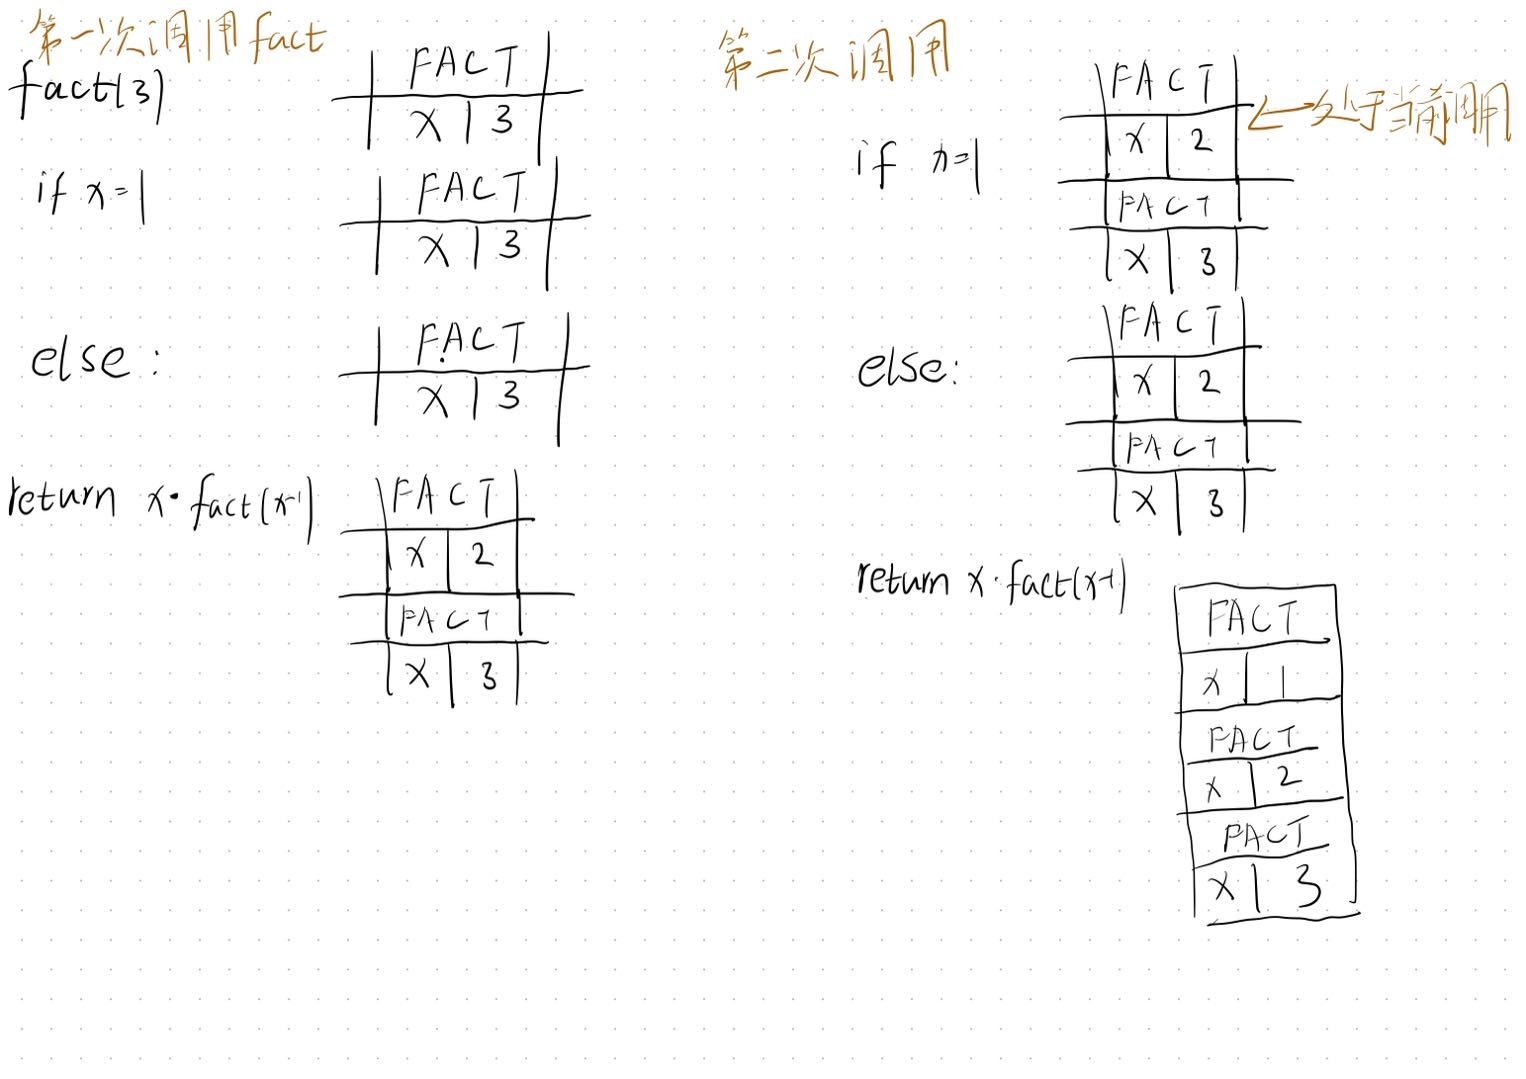 第一次调用fact
fact(3)
FACT
x 3
if x=1
FACT
x 3
else:
FACT
x 3
return x·fact(x-1)
FACT
x 2
FACT
x 3
第二次调用
FACT
x 2
FACT
x 3
←处于当前调用
if x=1
FACT
x 2
FACT
x 3
else:
return x·fact(x-1)
FACT
x 1
FACT
x 2
FACT
x 3